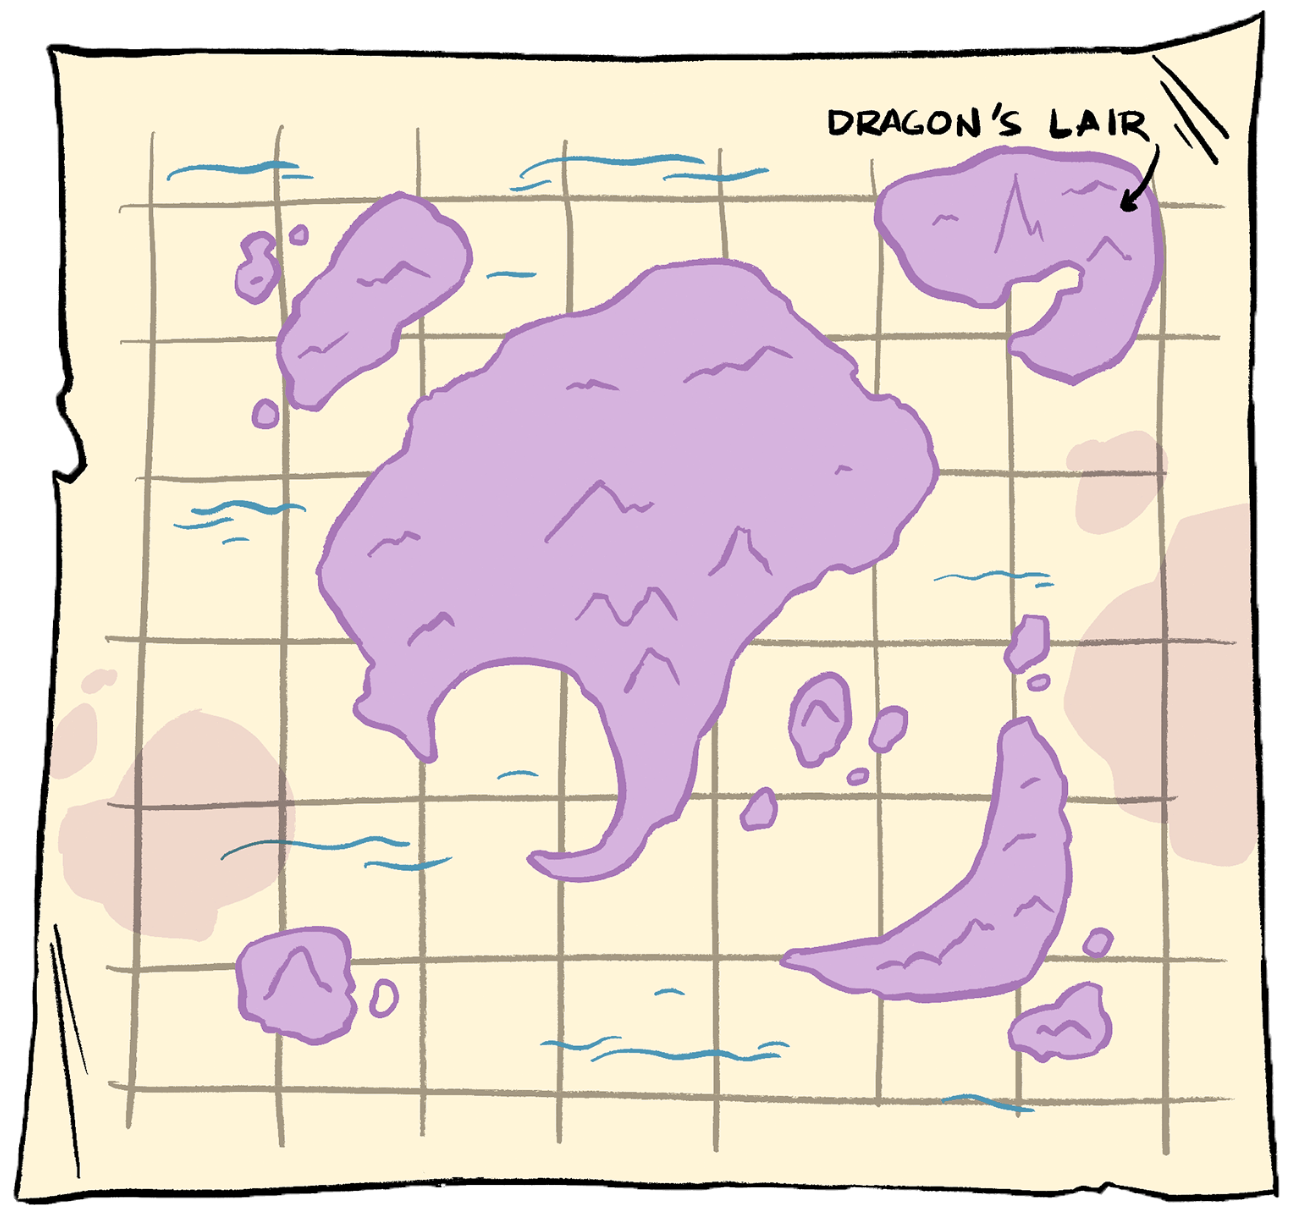 DRAGON'S LAIR